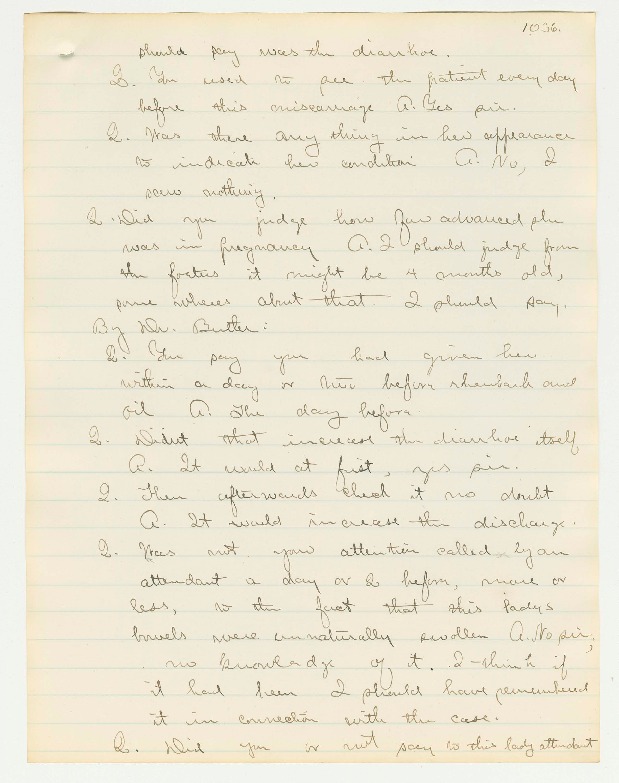 1036.
should say was the diarrhoe.
Q. You used to see the patient every day
before this miscarriage A. Yes sir.
Q. Was there any thing in her appearance
to indicate her condition A. No, I
saw nothing.
Q. Did you judge how far advanced she
was in pregnancy A. I should judge from
the foetus it might be 4 months old,
some wheres about that I should say.
By Dr. Butler:
Q. You say you had given her
within a day or two before rheubarb and
oil A. The day before
Q. Didnt that increase the diarrhoe itself
A. It would at first, yes sir.
Q. Then afterwards check it no doubt
A. It would increase the discharge.
Q. Was not your attention called by an
attendant a day or 2 before, more or
less, to the fact that this ladys
bowels were unnaturally swollen A. No sir,
no knowledge of it. I think if
it had been I should have remembered
it in connection with the case.
Q. Did you or not say to this lady attendant